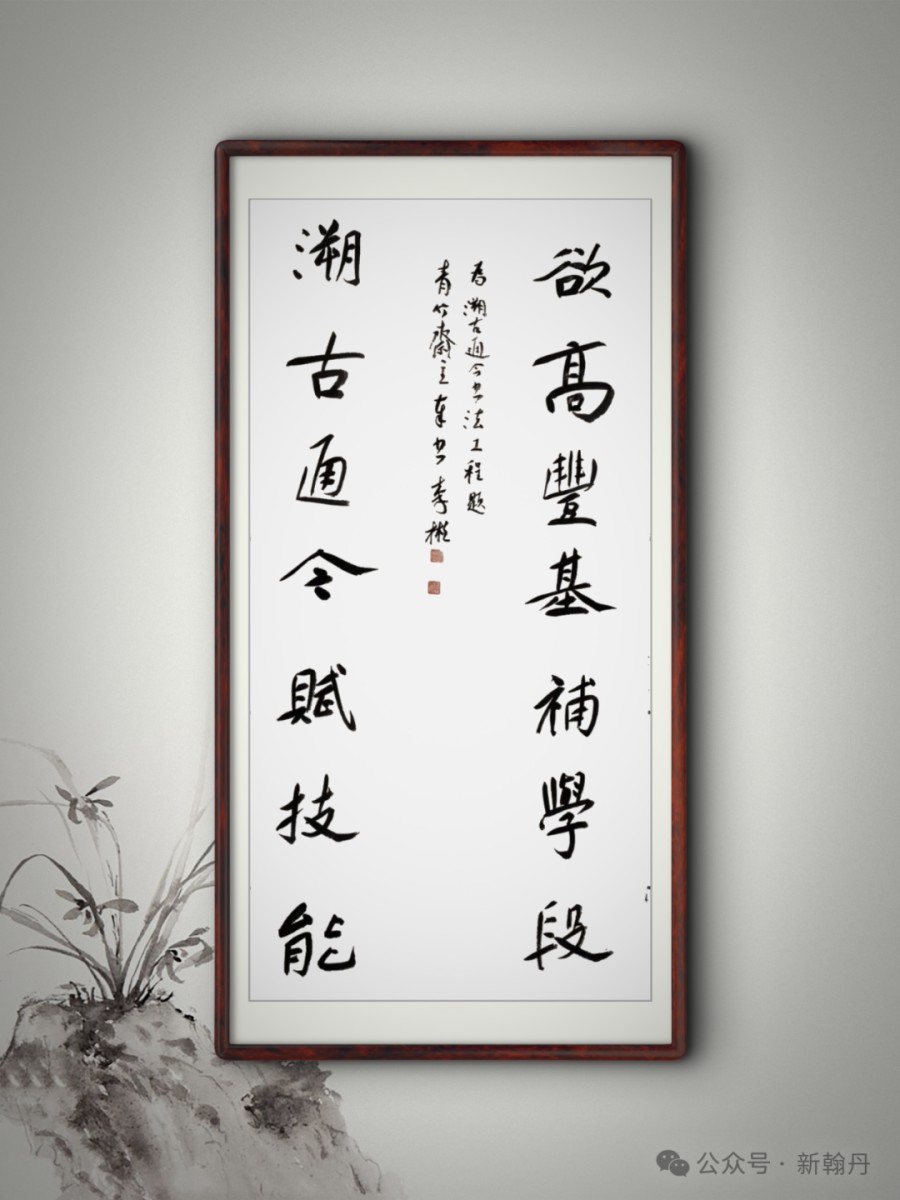 欲高豐基補學段
溯古通今賦技能
為溯古通今书法工程題
青竹齋主奉书李
公众号·新翰丹